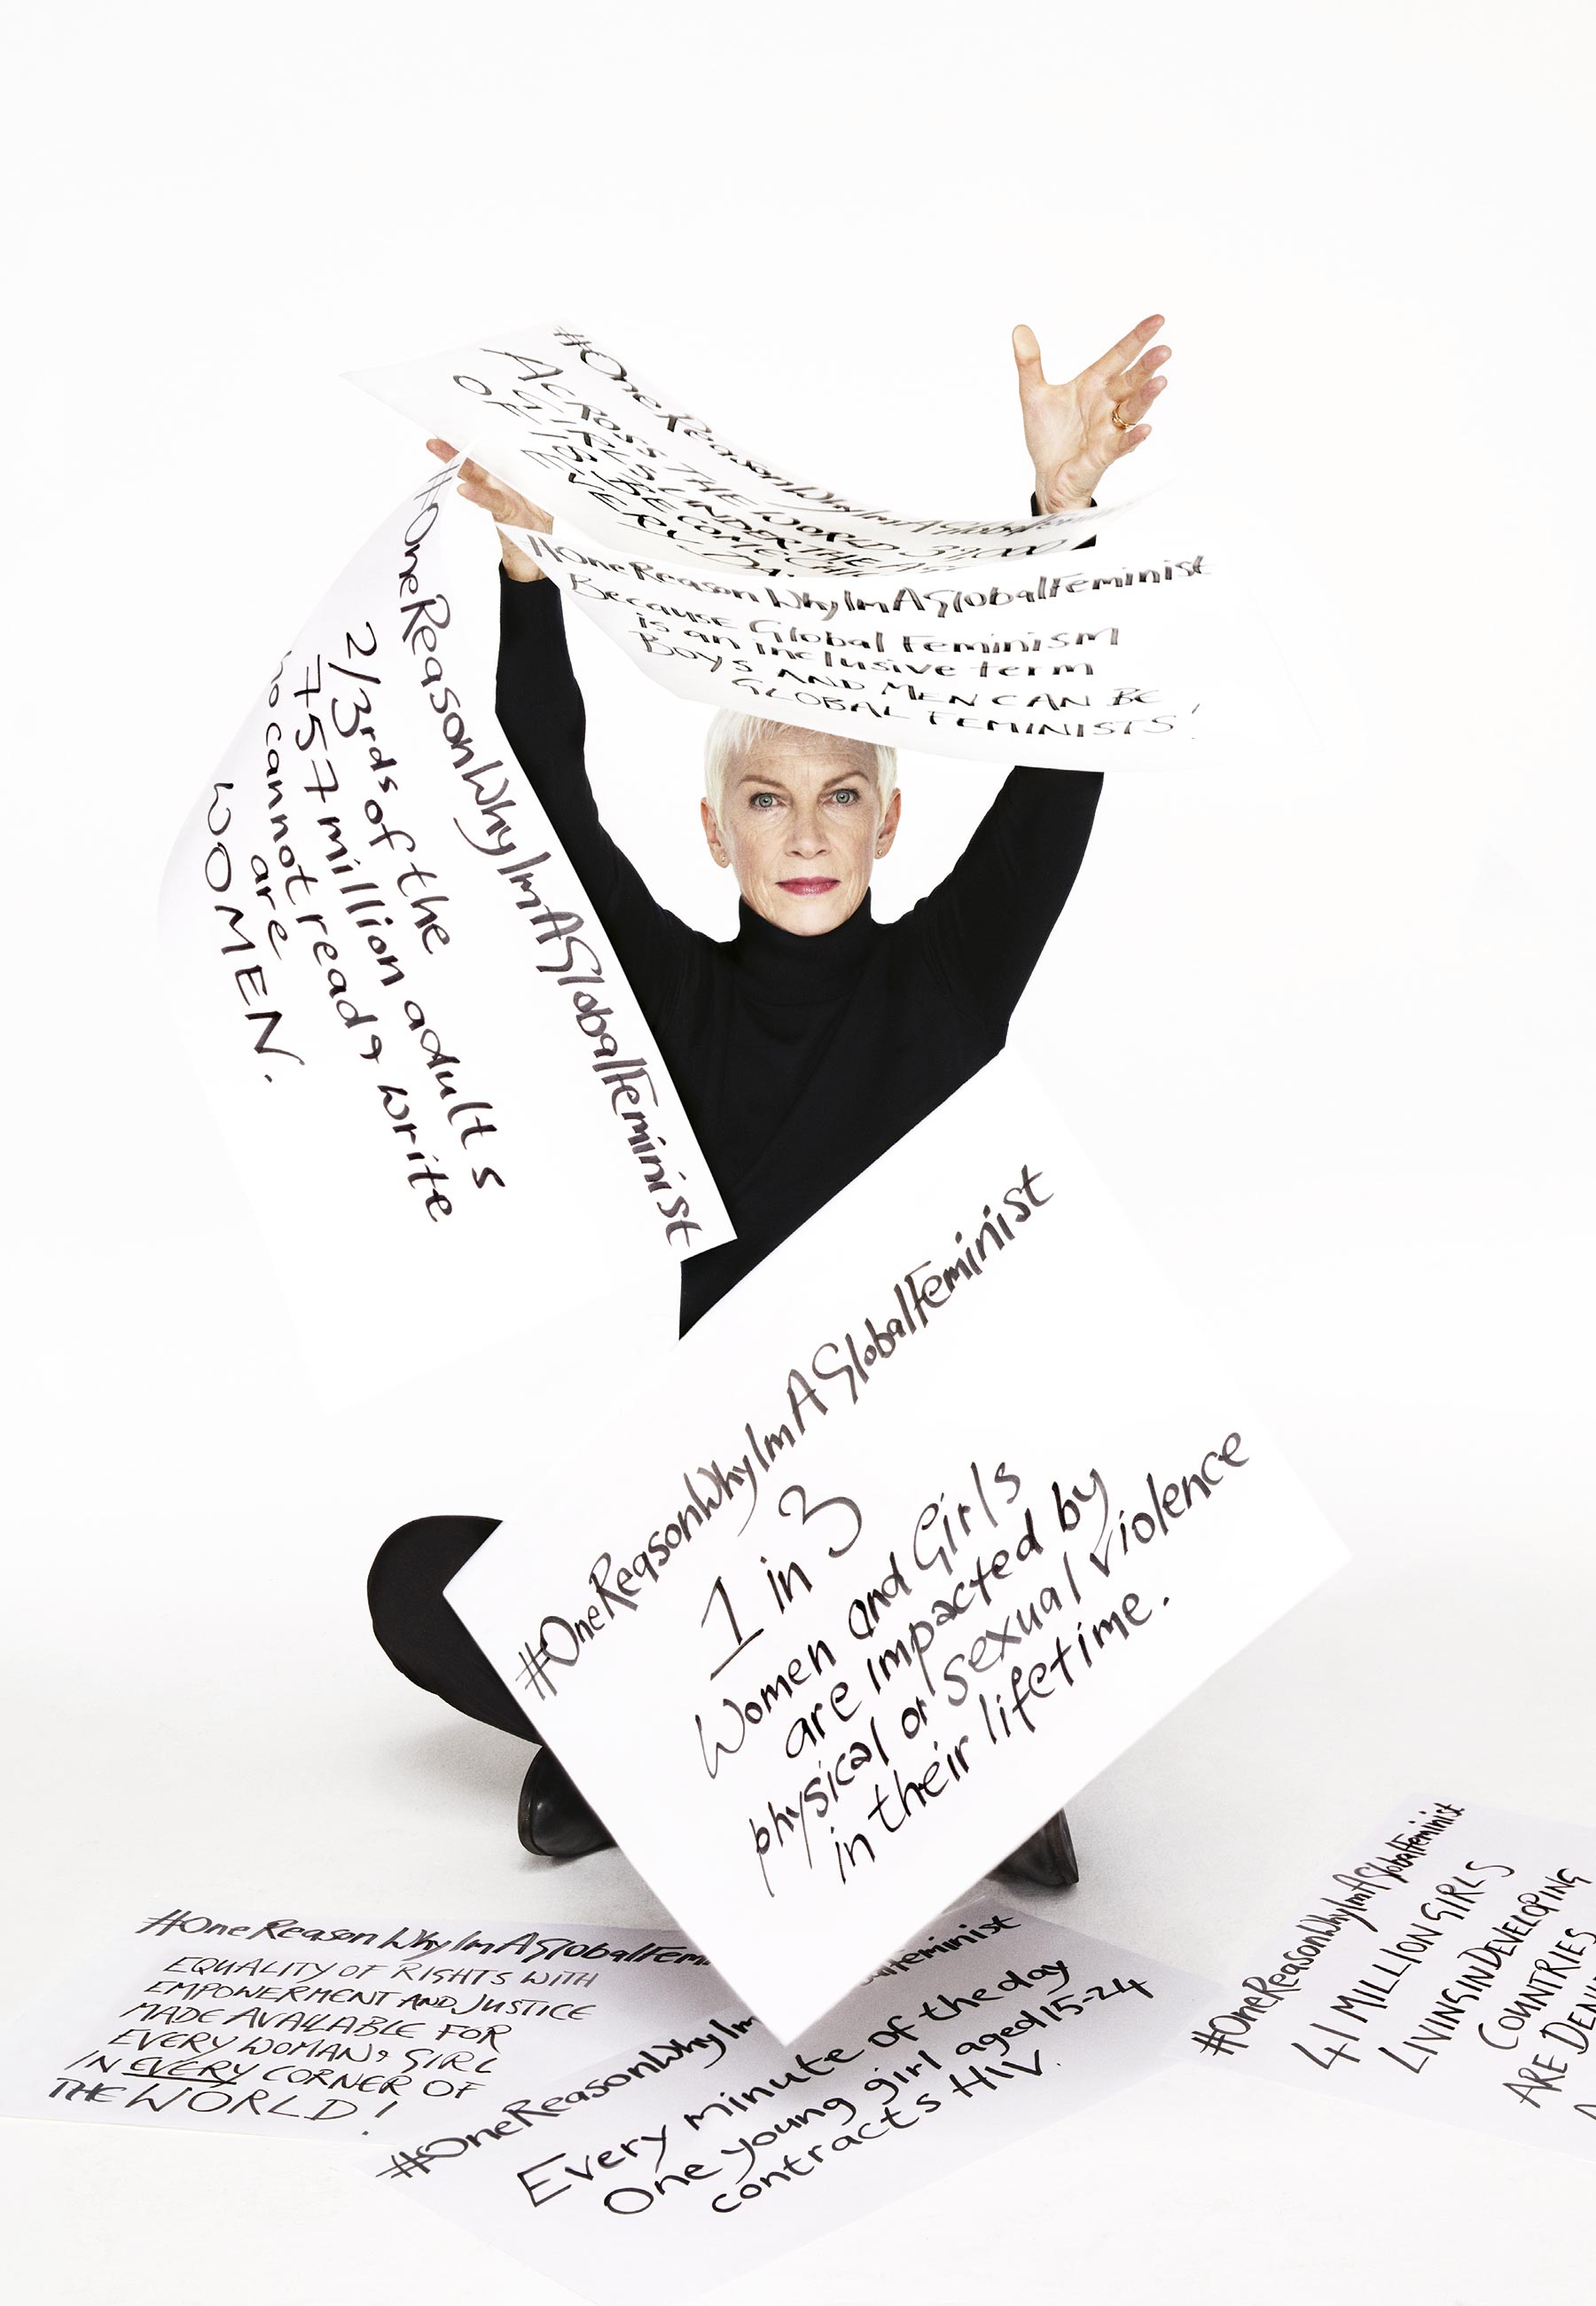 #OneReasonWhyImAGlobalFeminist
ACROSS THE WORLD 39,000
GIRLS UNDER THE
OF 18 BECOME
EVERY DA
#OneReasonWhyImAGlobalFeminist
Because Global Feminism
is an inclusive term
Boys AND MEN CAN BE
GLOBAL FEMINISTS!
#OneReasonWhyImAGlobalFeminist
2/3rds of the
757 million adults
cannot read & write
are
WOMEN.
#OneReasonWhyImAGlobalFeminist
1 in 3
Women and Girls
are impacted by
physical or sexual violence
in their lifetime.
#OneReasonWhyImAGlobalFem
EQUALITY OF RIGHTS WITH
EMPOWERMENT AND JUSTICE
MADE AVAILABLE FOR
EVERY WOMAN, GIRL
IN EVERY CORNER OF
THE WORLD!
#OneReasonWhyIm balFeminist
Every minute of the day
One young girl aged 15-24
contracts HIV.
#OneReasonWhyImAGlobalFeminist
41 MILLION GIRLS
LIVING IN DEVELOPING
COUNTRIES
ARE DENI